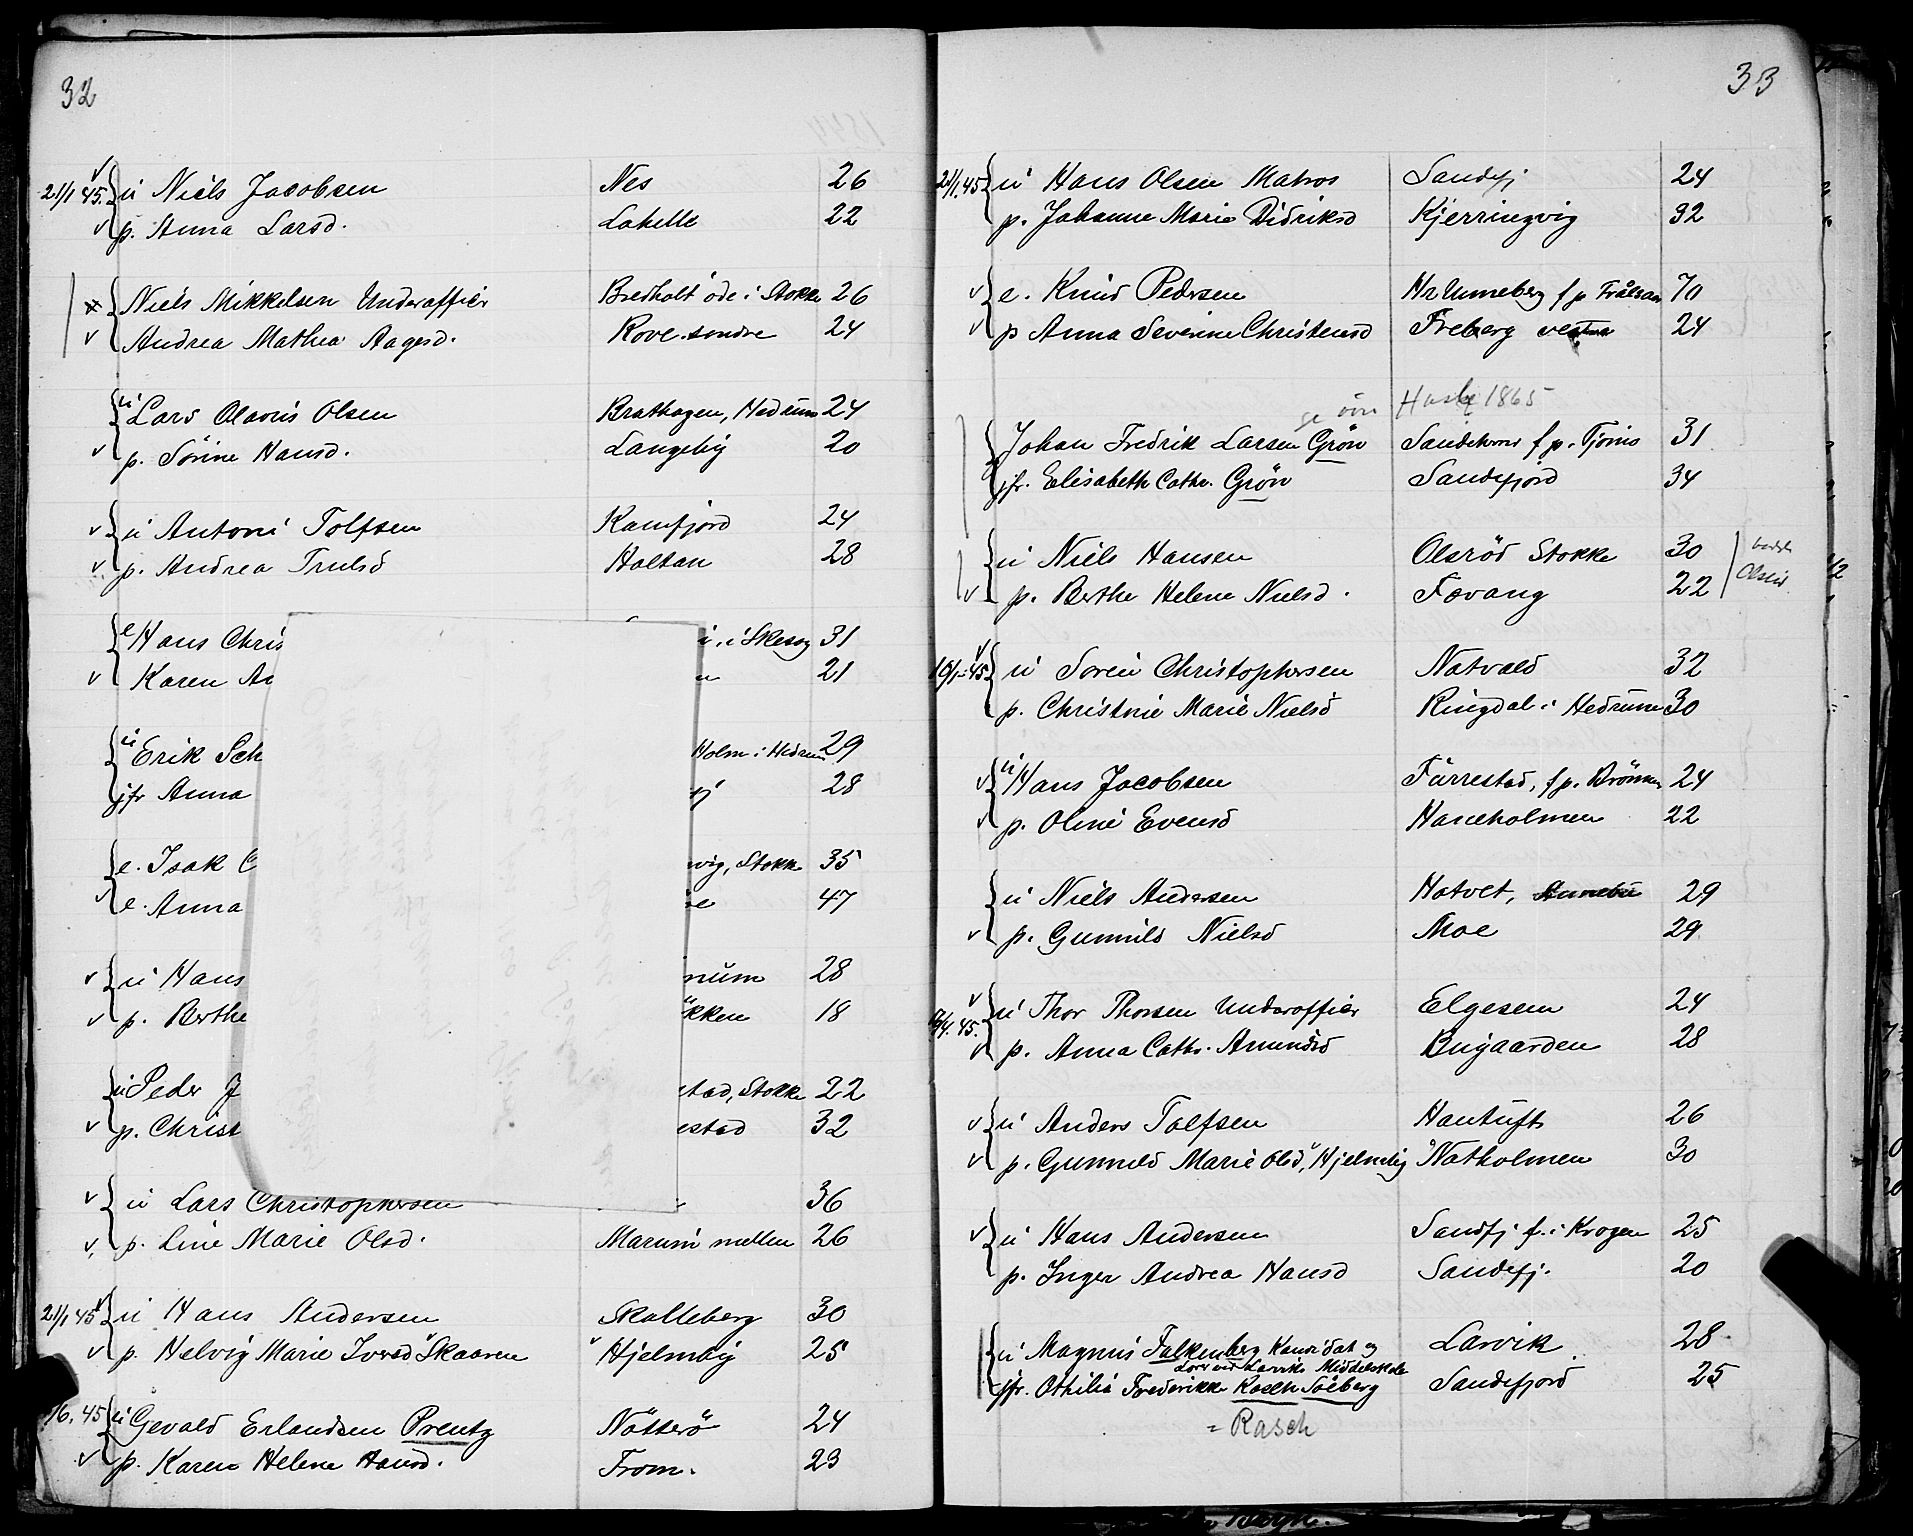 32
21/1 45. u Niels Jacobsen Nes 26
p. Anna Larsd. Lahelle 22
Niels Mikkelsen Underofficier Bredholt öde i Stokke 26
Andrea Mathea Aagesd. Rove söndre 24
u Lars Olavus Olsen Brathagen, Hedrum 24
p. Sörine Hansd. Langeby 20
u Anton Tolfsen Kamfjord 24
p. Andrea Trulsd Haltan 28
e Hans Chris i. i Skesog 31
Karen Aa n 21
u Erik Sch Holm i Hedrum 29
jfr Anna fj 28
e. Isak C vig, Stokke 35
e. Anna e 47
u Hans num 28
p. Berthe ökken 18
u Peder J stad, Stokke 22
p. Christ estad 32
u Lars Christophersen 36
p. Line Marie Olsd. Marum mellem 26
21/1 45 u Hans Andersen Skalleberg 30
p. Helvig Marie Iversd Skaaren Hjelmby 25
/6. 45 u Gevald Erlandsen Prentz Nötterö 24
p. Karen Helene Hansd. From. 23
33
21/1. 45 u Hans Olsen Matros Sandefj 24
p. Johanne Marie Didriksd Kjerringvig 32
e. Knud Pedersen Hr Unneberg f p 70
p Anna Severine Christensd Freberg vestre 24
1865
Johan Fredrik Larsen Grön f p. Tjömö 31
jfr. Elisabeth Cathr. Grön Sandefjord 34
u Niels Hansen Olsröd Stokke 30
p. Berthe Helene Nielsd. Fævang 22
16/1-45 u Sören Christophersen Natvald 32
p. Christine Marie Nielsd Ringdal i Hedrum 30
u Hans Jacobsen Furrestad, f p. 24
p. Oline Evensd Haneholmen 22
u Niels Andersen Hotvet, Annebu 29
p. Gunnild Nielsd Moe 29
/4. 45. u Thor Thorsen Underofficier Elgesem 24
p. Anna Cathr. Amundsd Bugaarden 28
u Anders Tolfsen Hantuft 26
p. Gunnild Marie Olsd, "Hjelmby" Natholmen 30
u Hans Andersen Sandfj f. i Krogen 25
p. Inger Andrea Hansd Sandefj. 20
u Magnus Falkenberg Kandidat og Larvik 28
Lærer ved Larviks Middelskole
jfr. Othilie Frederikke Rasch Söeberg Sandefjord 25
= Rasch